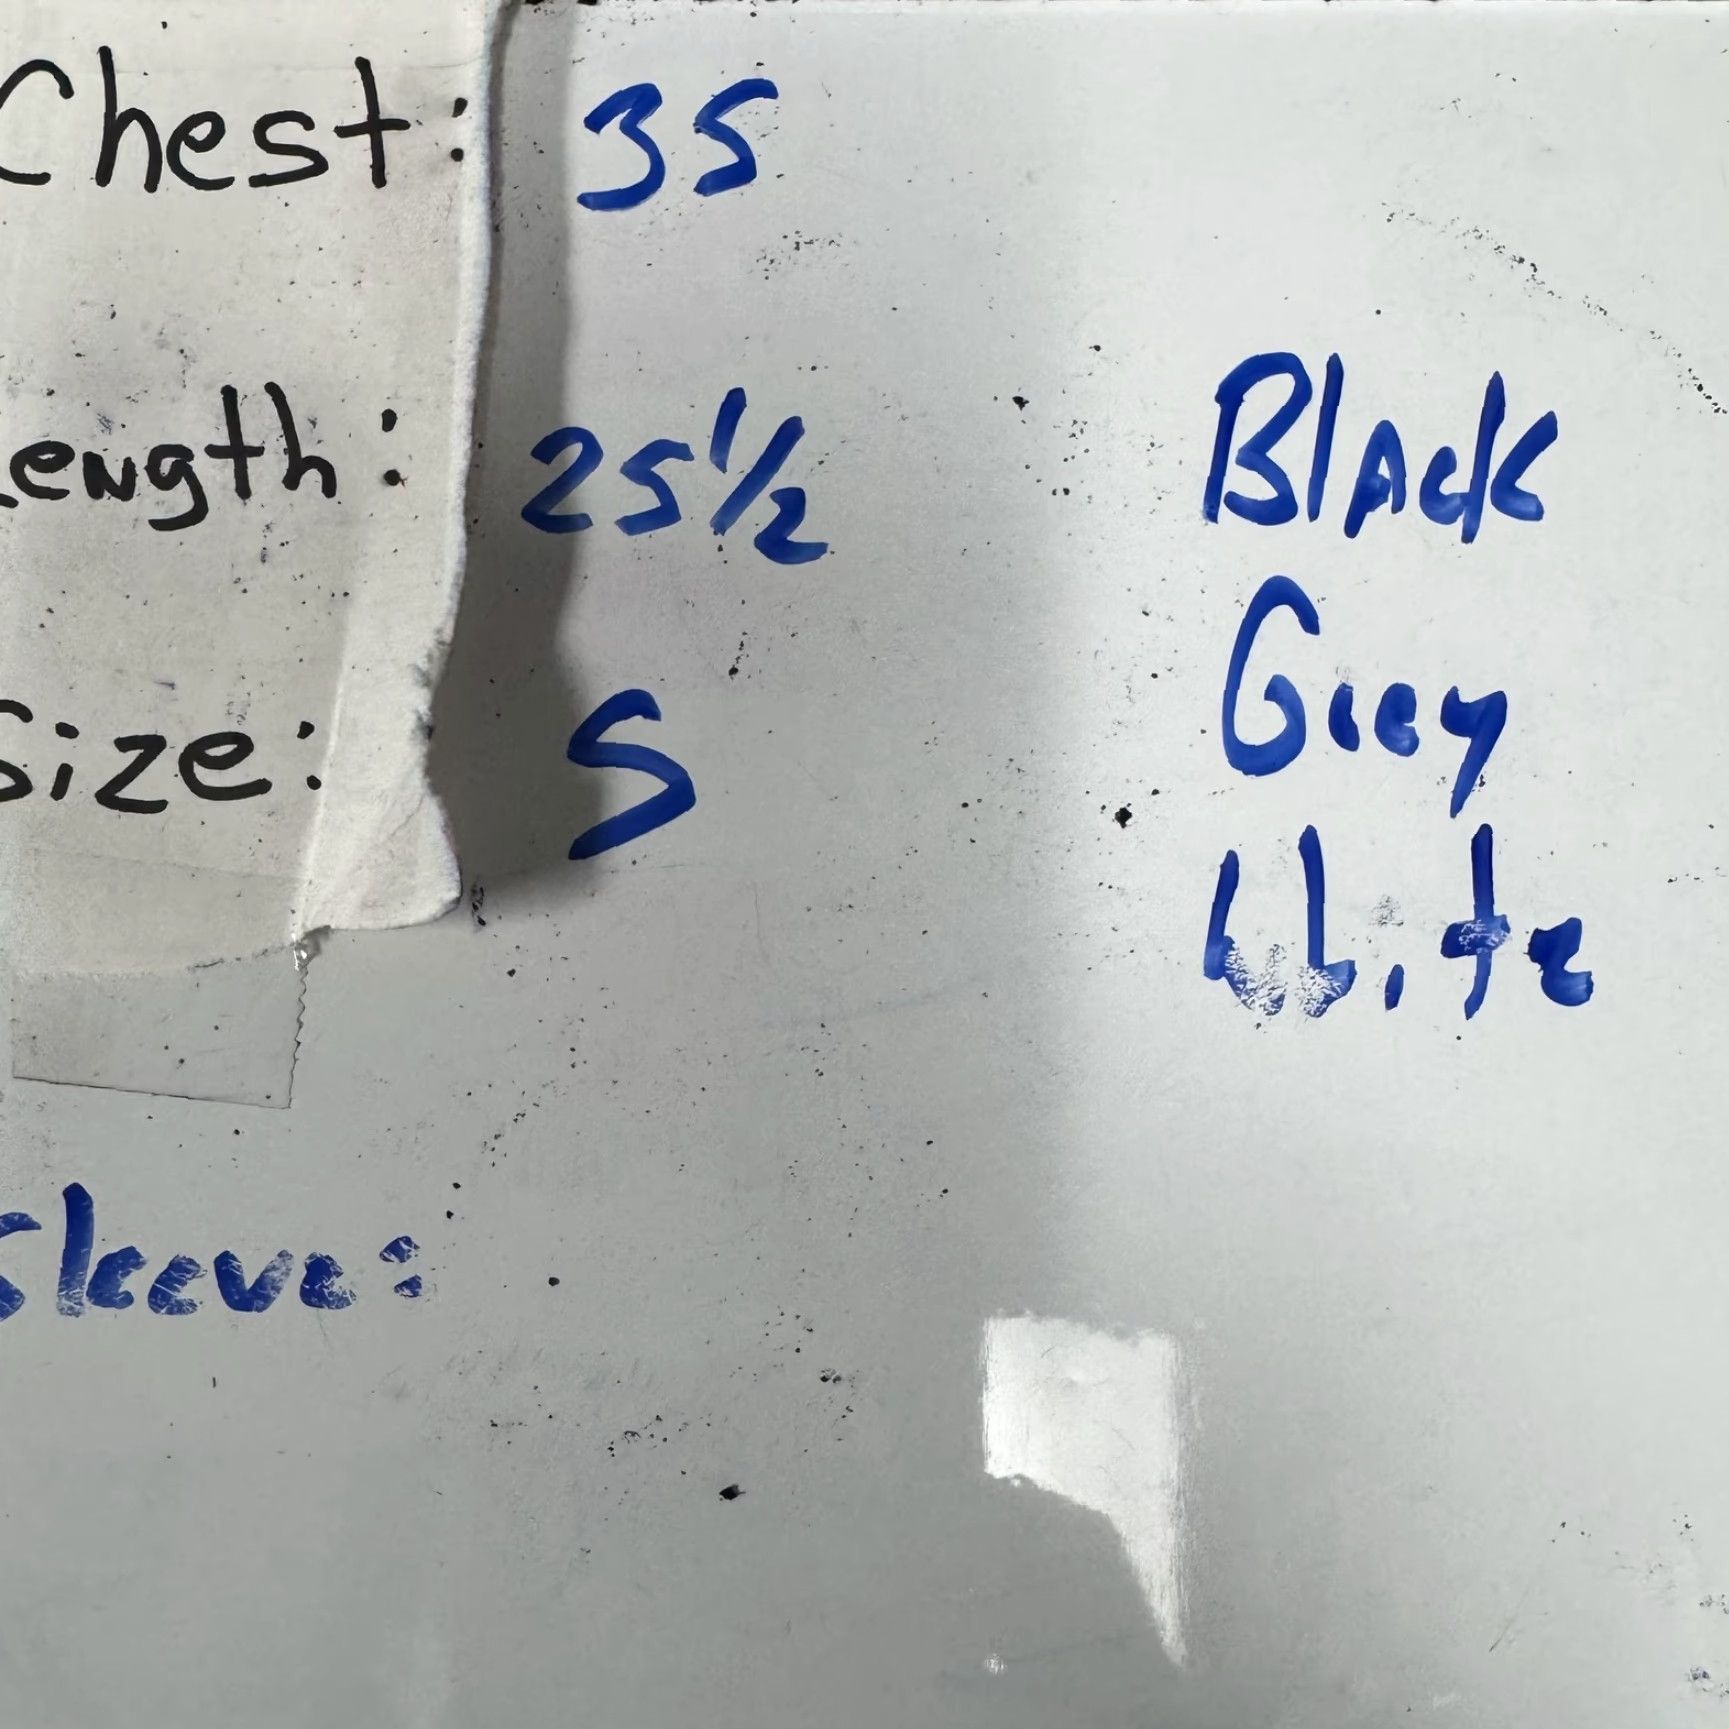 Chest: 35
Length: 25 1/2
Black
Grey
Size: S
White
Sleeve: